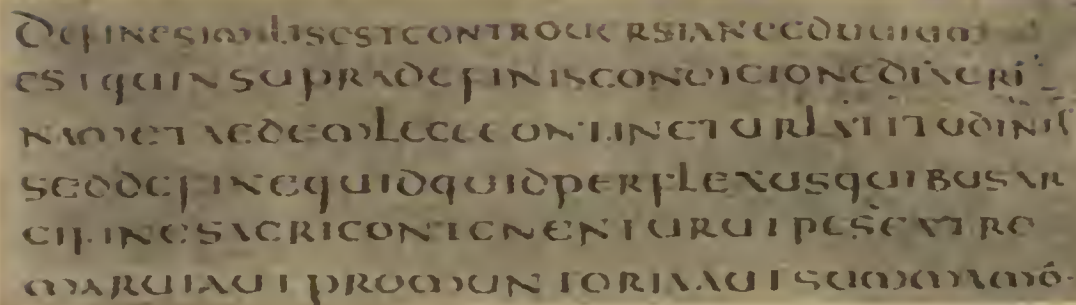 DEFINESIMILISESTCONTROUERSIANECDUUIUM
ESTQUINSUPRADEFINISCONDICIONEDIXERI
NAMETAEDEMLEGECONTINETURLATITUDINIS
SEDDEFINEQUIDQUIDPERFLEXUSQUIBUSAR
CIFINESAGRICONTENENTURUTPESEXTRE
MARUIAUTPROMUNTORIAAUTSUMMAMO